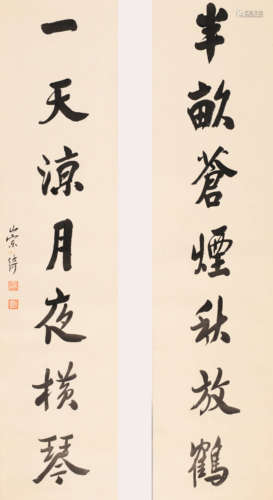 半畝蒼煙秋放鶴
一天涼月夜橫琴
崇綺